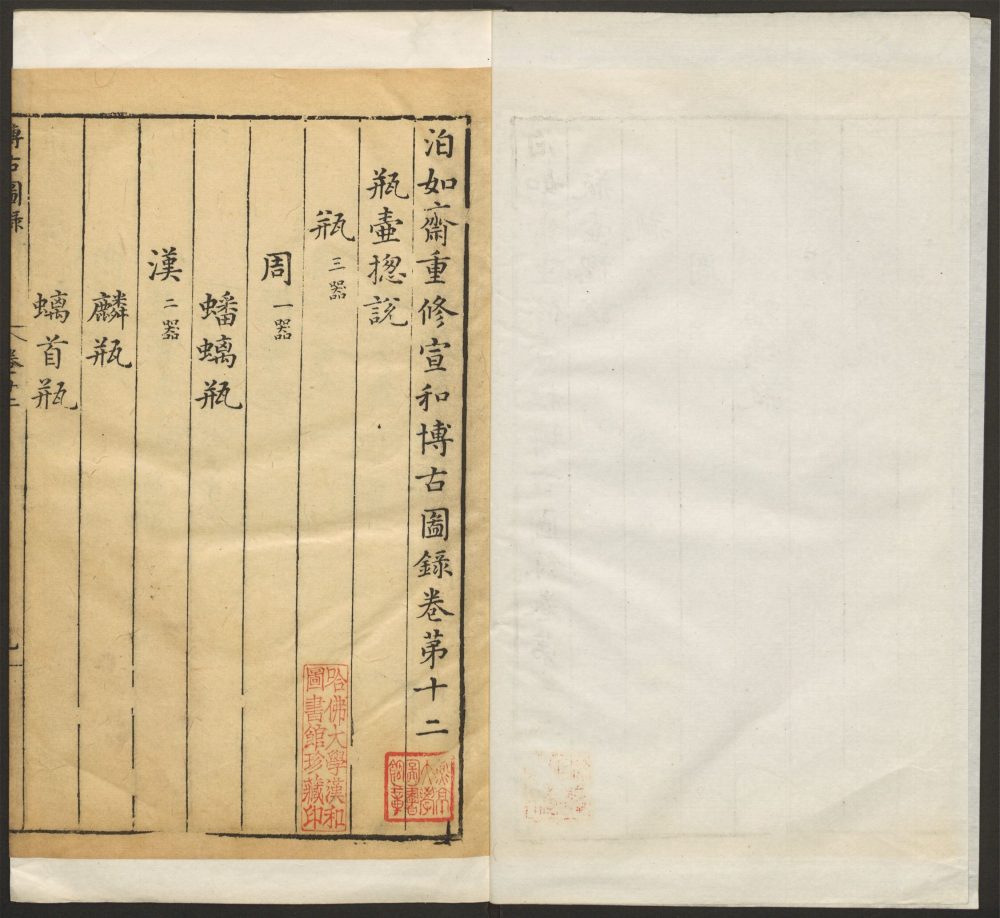 泊如齋重修宣和博古圖錄卷第十二
瓶壷揔說
瓶三器
周一器
蟠螭瓶
漢二器
麟瓶
螭首瓶
博古圖錄
卷十二
哈佛大學漢和
圖書館珍藏印